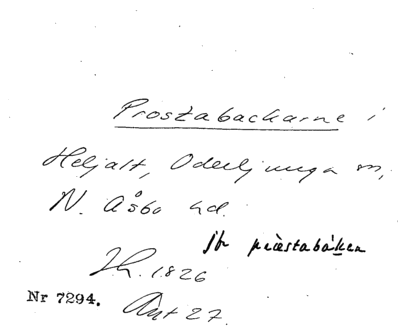 Prostabackarne i
Heljalt, Oderljunga sn,
N. Åsbo hd.
jfr præstabákka
Jh. 1826
Nr 7294. Ant 27.